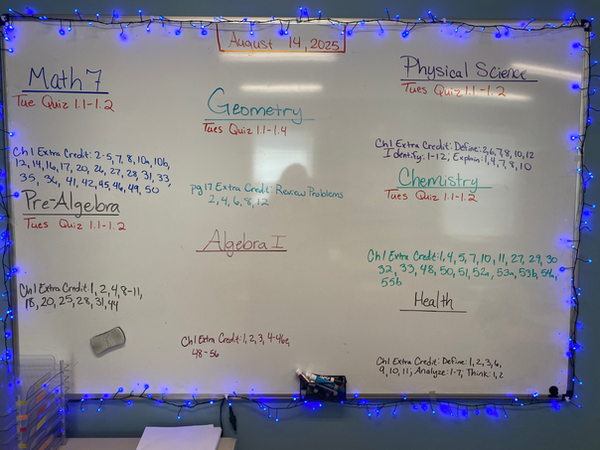 August 14, 2025
Math 7
Tue Quiz 1.1-1.2
Ch 1 Extra Credit: 2-5, 7, 8, 10a, 10b,
12, 14, 16, 17, 20, 26, 27, 28, 31, 33,
35, 36, 41, 42, 45, 46, 49, 50
Pre-Algebra
Tues Quiz 1.1-1.2
Ch 1 Extra Credit: 1, 2, 4, 8-11,
18, 20, 25, 28, 31, 44
Geometry
Tues Quiz 1.1-1.4
pg 17 Extra Credit: Review Problems
2, 4, 6, 8, 12
Algebra I
Ch 1 Extra Credit: 1, 2, 3, 4-46e,
48-56
Physical Science
Tues Quiz 1.1-1.2
Ch 1 Extra Credit: Define: 2, 6, 7, 8, 10, 12
Identify: 1-12, Explain: 1, 4, 7, 8, 10
Chemistry
Tues Quiz 1.1-1.2
Ch 1 Extra Credit: 1, 4, 5, 7, 10, 11, 27, 29, 30
32, 33, 48, 50, 51, 52a, 53a, 53b, 54a,
55b
Health
Ch 1 Extra Credit: Define: 1, 2, 3, 6,
9, 10, 11; Analyze: 1-7; Think: 1, 2